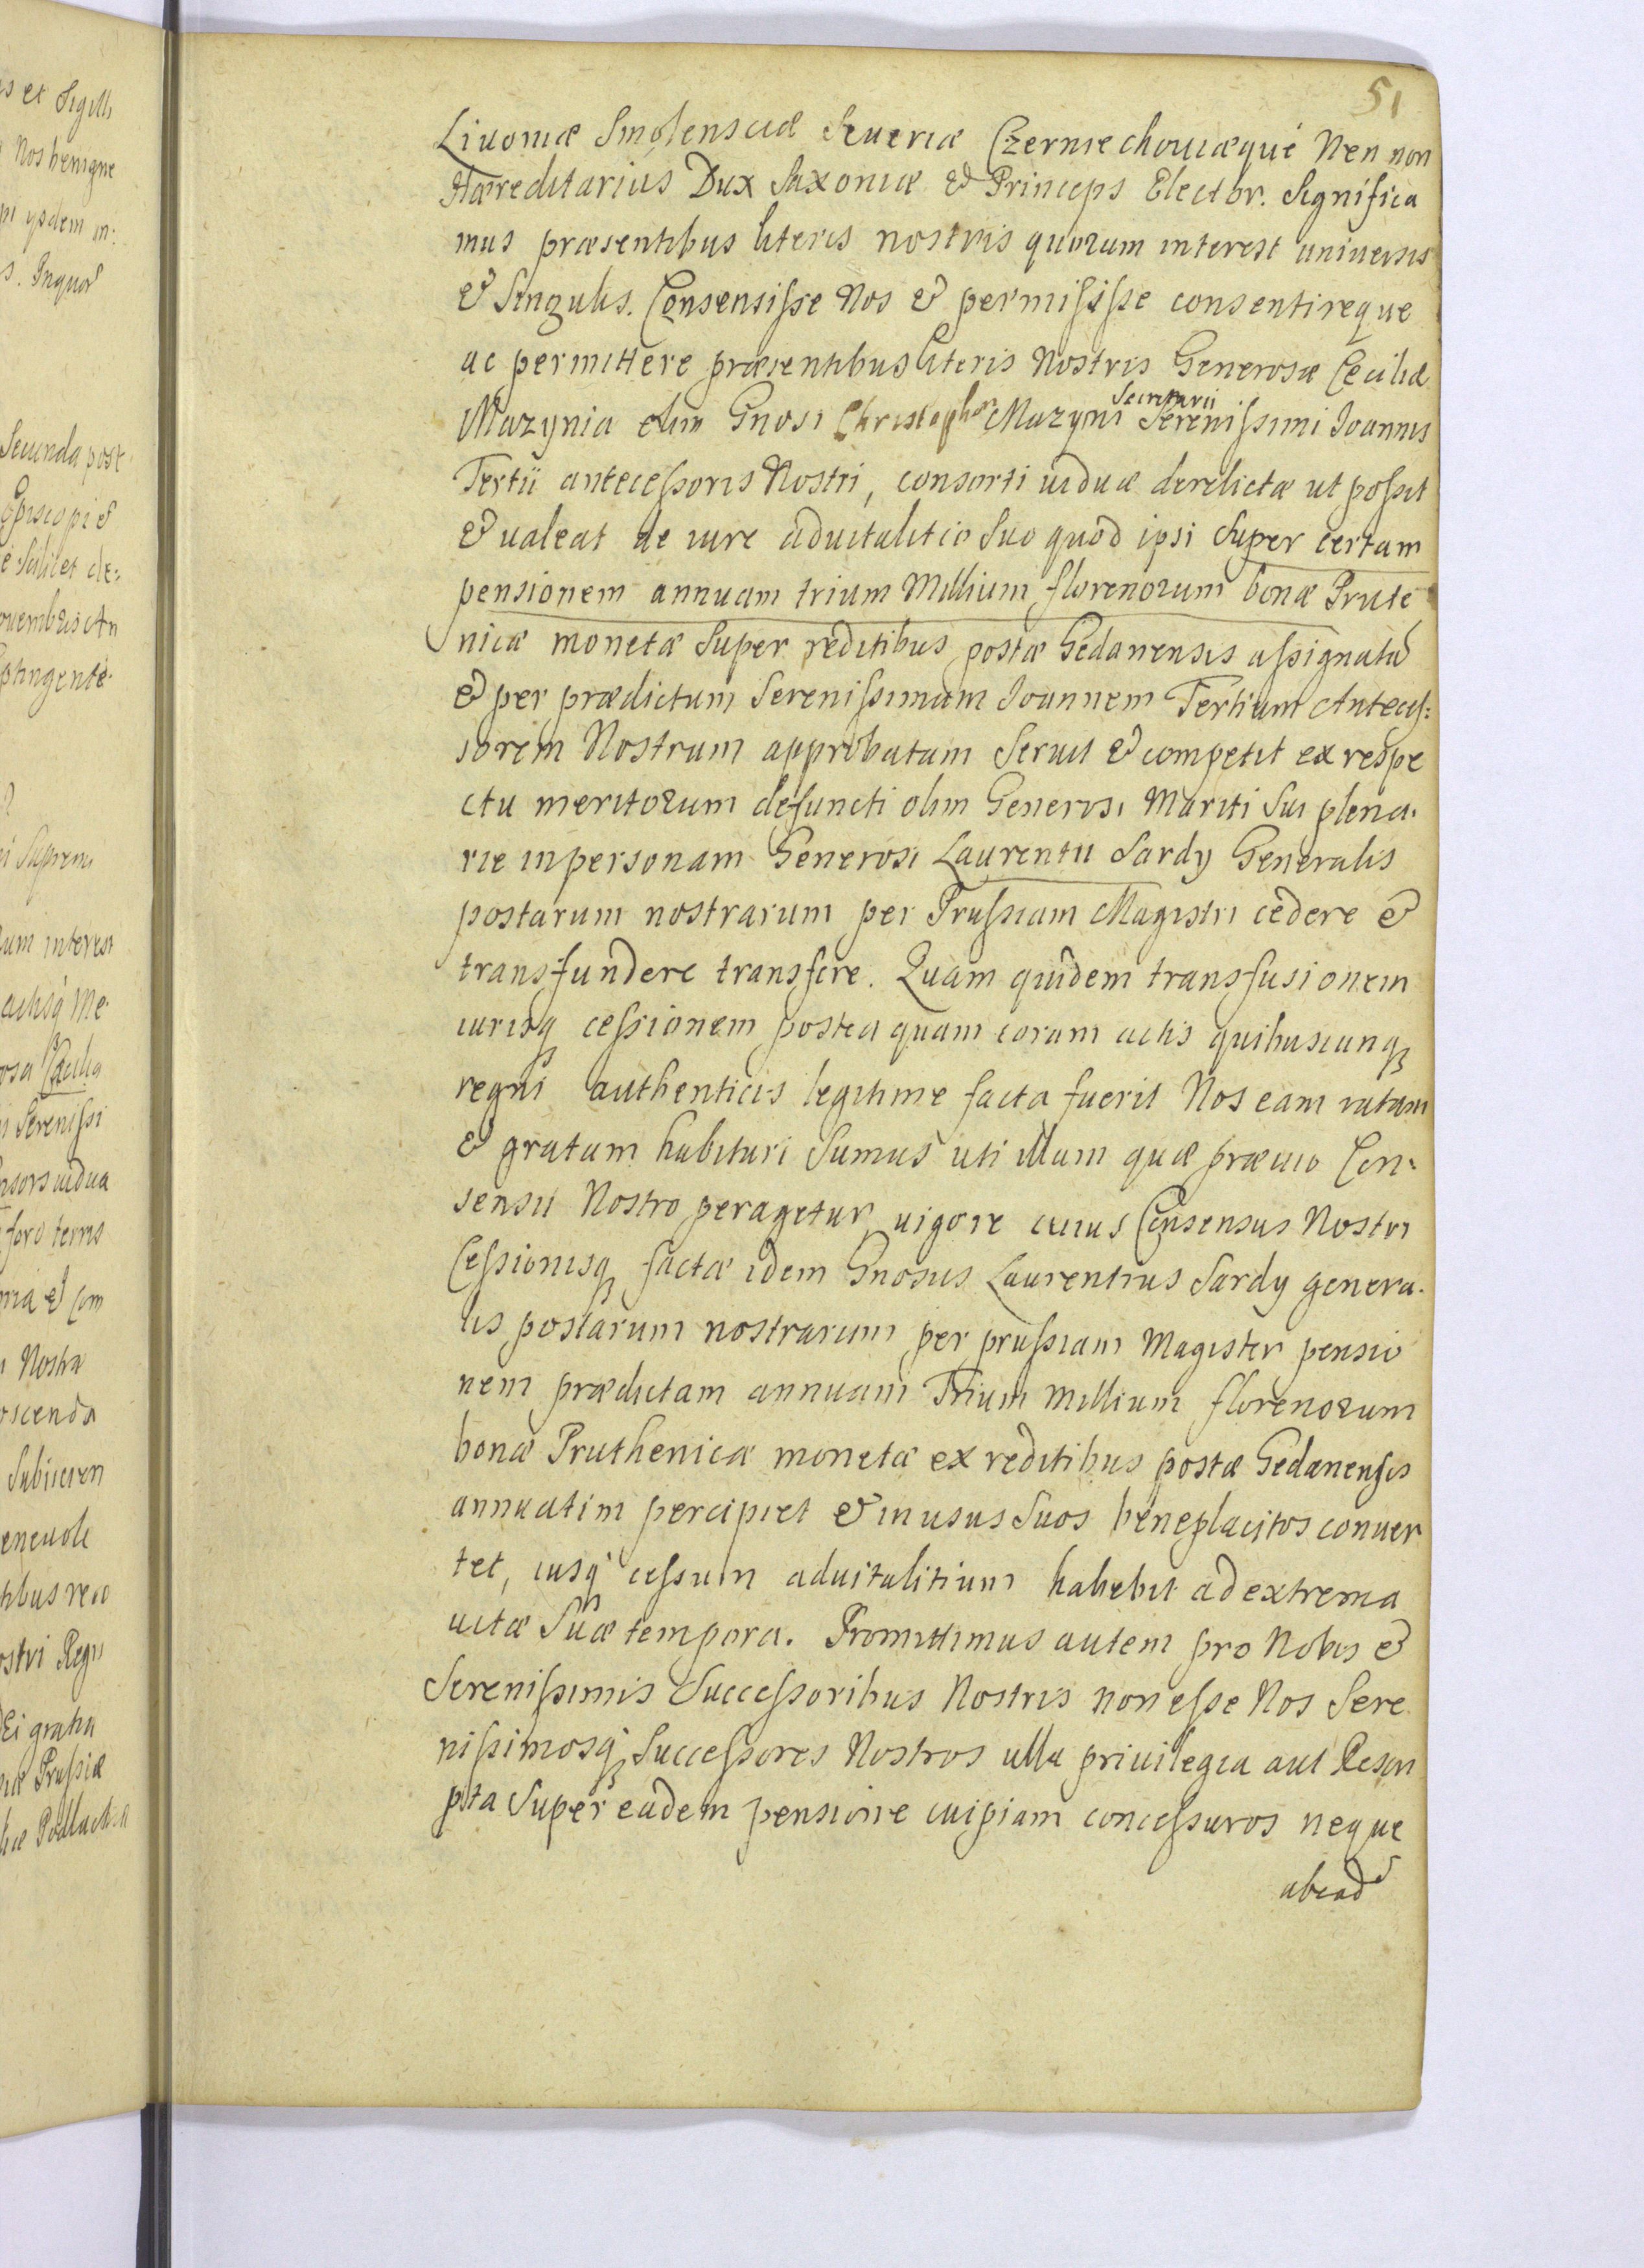 51
Livoniæ Smolensciæ Severiæ Czerniechoviæque Nen non
Hæreditarius Dux Saxoniæ & Princeps Elector. Significa
mus præsentibus literis nostris quorum interest universis
& Singulis. Consensisse Nos & permisisse consentireque
ac permittere præsentibus literis Nostris Generosæ Cecilia
Secretarii
Mazynia olim Gnosi Christophori Mazyni Serenissimi Joannis
Tertii antecessoris Nostri, consorti uiduæ derelictæ ut possit
& ualeat de iure aduitalitio Suo quod ipsi Super certam
pensionem annuam trium Millium florenorum bonæ Prute
nicæ monetæ Super reditibus postæ Gedanensis assignatã
& per prædictum Serenissimum Joannem Tertium Anteces:
sorem Nostrum approbatam Seruit & competit ex respe
ctu meritorum defuncti olim Generosi Mariti Sui plena.
rie in personam Generosi Laurentii Sardy Generalis
postarum nostrarum per Prussiam Magistri cedere &
transfundere transfere. Quam quidem transfusionem
iurisq cessionem postea quam coram actis quibuscunq
regni authenticis legitime facta fuerit Nos eam ratam
& gratam habituri Sumus uti illam quæ præuio Con-
sensu Nostro peragetur uigore cuius Consensus Nostri
Cessionisq factæ idem Gnosus Laurentius Sardy genera.
lis postarum nostrarum per prussiam Magister pensio
nem prædictam annuam Trium millium florenorum
bonæ Pruthenicæ monetæ ex reditibus postæ Gedanensis
annuatim percipiet & in usus Suos beneplacitos conuer
tet, iusq cessum aduitalitium habebit ad extrema
uitæ Suæ tempora. Promittimus autem pro Nobis &
Serenissimis Successoribus Nostris non esse Nos Sere
nissimosq Successores Nostros ulla priuilegia aut Rescri
pta Super eadem pensione cuipiam concessuros neque
ab ead